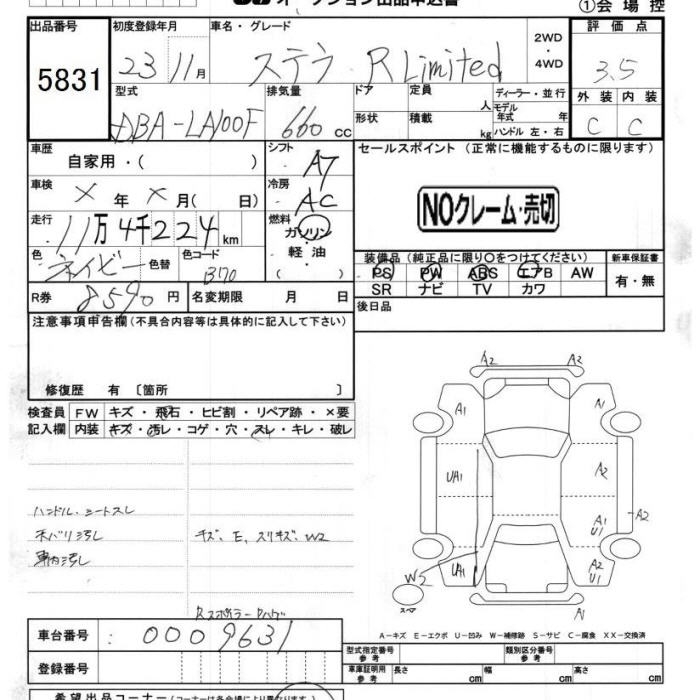 オークション出品申込書
①会場控
出品番号 初度登録年月 車名・グレード 2WD・4WD 評価点
5831 23 11月 ステラ RLimited 3.5
型式 排気量 ドア 定員 人 ディーラー・並行 外装 内装
DBA-LA100F 660cc 形状 積載 kg モデル年式 年 ハンドル 左・右 C C
車歴 自家用・( ) シフト AT セールスポイント (正常に機能するものに限ります)
車検 × 年 × 月( 日) 冷房 AC
NOクレーム・売切
走行 11万4千224km 燃料 ガソリン・軽油 ( )
色 ネイビー 色替 色コード B70
装備品 (純正品に限り〇をつけてください) 新車保証書
PS PW ABS エアB AW 有・無
SR ナビ TV カワ
R券 8590円 名変期限 月 日 後日品
注意事項申告欄(不具合内容等は具体的に記入して下さい)
修復歴 有 〔箇所 〕
検査員 FW キズ・飛石・ヒビ割・リペア跡・×要
記入欄 内装 キズ・汚レ・コゲ・穴・スレ・キレ・破レ
A2 A2
A1 A1
UA1 A2
A1 U1 A2
W2 UA1 A2 U1
A1
ハンドル・シートスレ
天バリ汚レ キズ、E、スリキズ、W2
車内汚レ
A-キズ E-エクボ U-凹み W-補修跡 S-サビ C-腐食 XX-交換済
車台番号 0009631
型式指定番号 参考 類別区分番号 参考
登録番号
車庫証明用 参考 長さ cm 幅 cm 高さ cm
希望出品コーナー